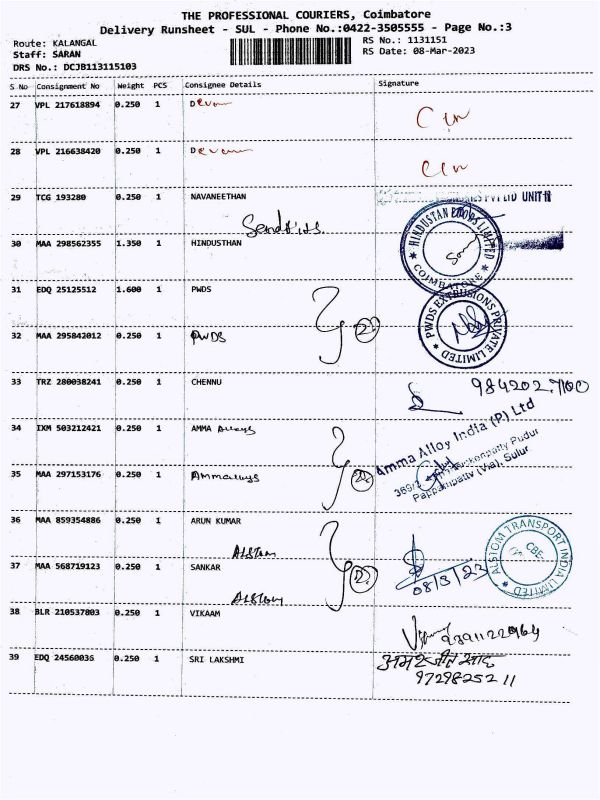 THE PROFESSIONAL COURIERS, Coimbatore
Delivery Runsheet - SUL - Phone No.:0422-3505555 - Page No.:3
Route: KALANGAL RS No.: 1131151
Staff: SARAN RS Date: 08-Mar-2023
DRS No.: DCJB113115103
S No Consignment No Weight PCS Consignee Details Signature
27 VPL 217618894 0.250 1
28 VPL 216638420 0.250 1
29 TCG 193280 0.250 1 NAVANEETHAN PVT LTD UNIT II
30 MAA 298562355 1.350 1 HINDUSTHAN HINDUSTAN FOODS LIMITED COIMBATORE
31 EDQ 25125512 1.600 1 PWDS PWDS EXTRUSIONS PRIVATE LIMITED
32 MAA 295842012 0.250 1 PWDS 2
33 TRZ 280038241 0.250 1 CHENNU
34 IXM 503212421 0.250 1 AMMA Alloys Amma Alloy India (P) Ltd
35 MAA 297153176 0.250 1 Ammalloys
Pappampatty (Via), Sulur
36 MAA 859354886 0.250 1 ARUN KUMAR ALSTOM TRANSPORT INDIA LIMITED CBE
Alstom
37 MAA 568719123 0.250 1 SANKAR 2 08/3/23
Alstom
38 BLR 210537803 0.250 1 VIKAAM
39 EDQ 24560036 0.250 1 SRI LAKSHMI